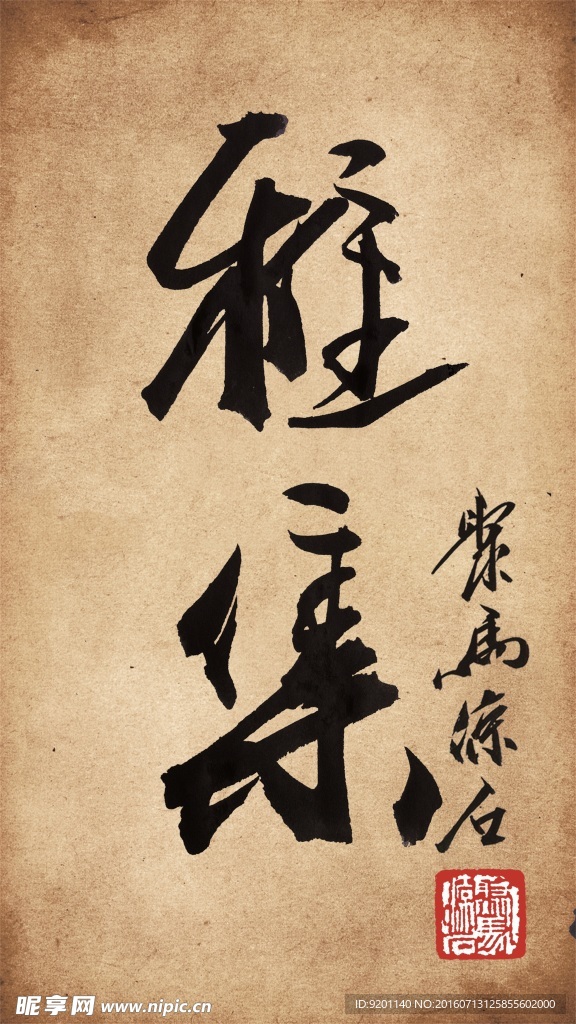 雅集
聚馬漱石
昵享网 www.nipic.cn
ID:9201140 NO:20160713125855602000